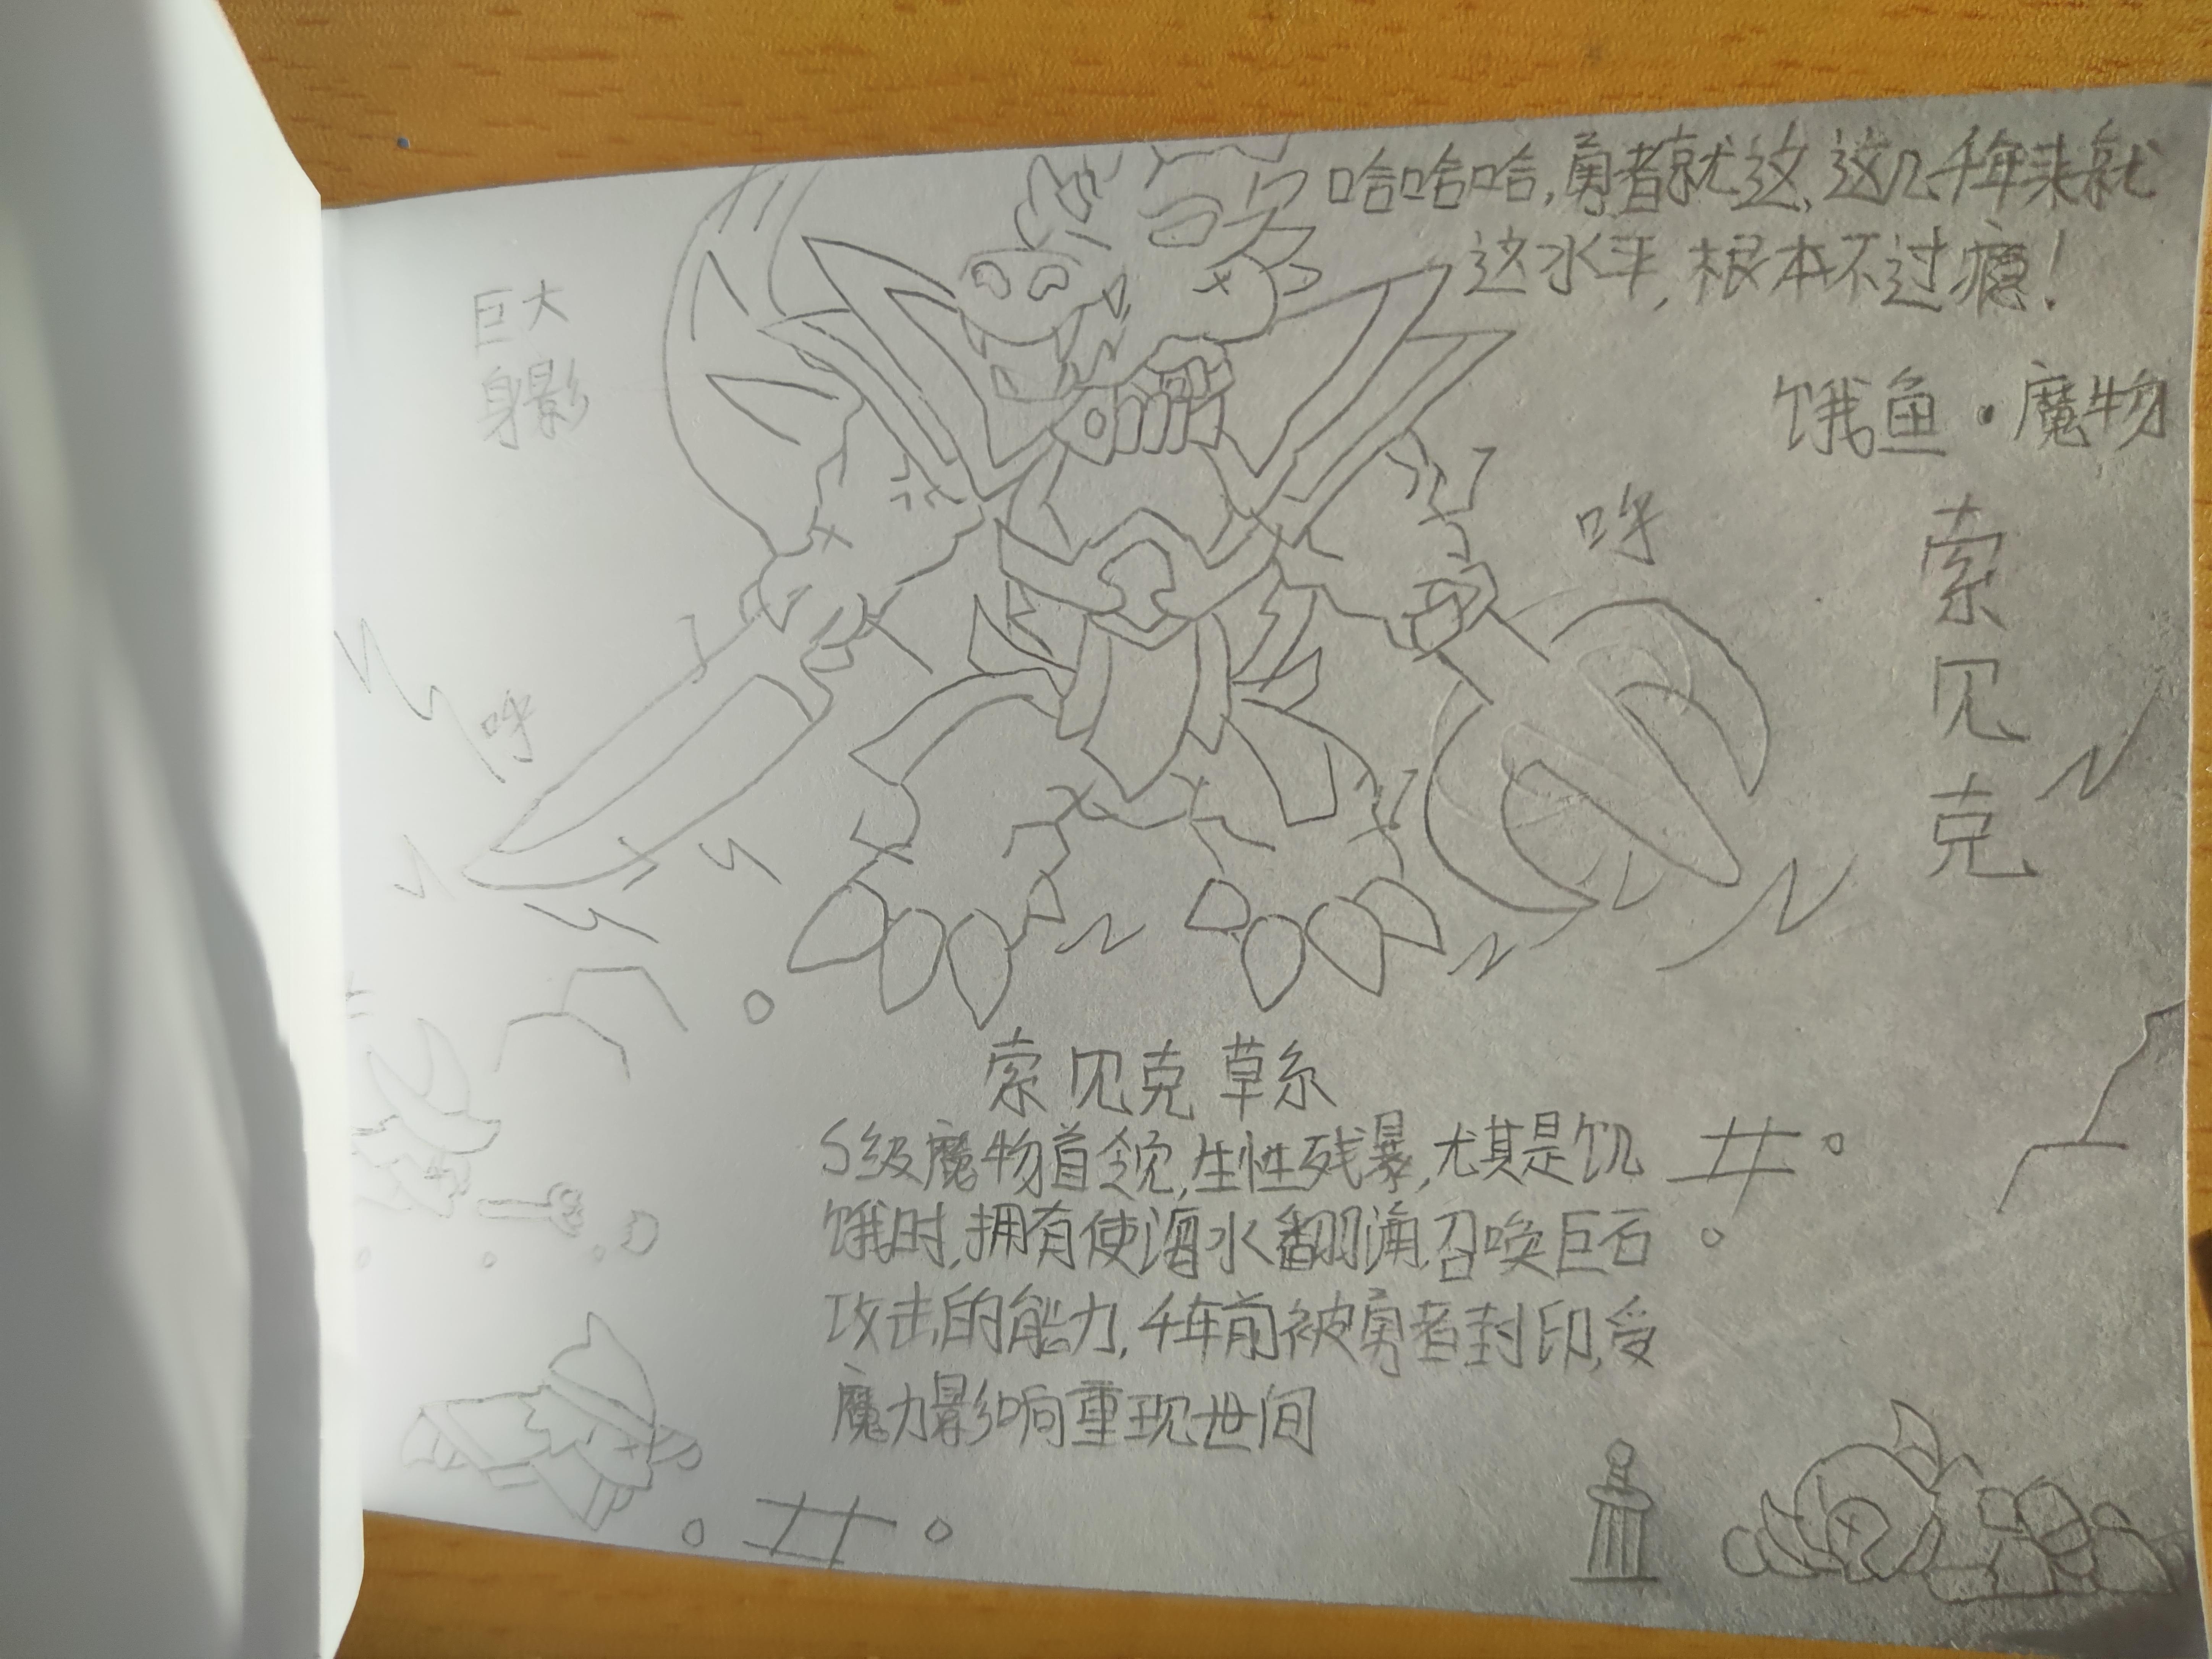 哈哈哈,勇者就这,这几千年来就
这水平,根本不过瘾!
巨大
身影
饿鱼·魔物
索
贝
克
呼
呼
索贝克草系
S级魔物首领,生性残暴,尤其是饥
饿时,拥有使海水翻涌,召唤巨石
攻击的能力,千年前被勇者封印,受
魔力影响重现世间